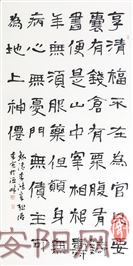 享清福不在為官只要
囊有錢倉有粟腹有詩
書便是山中宰相祈壽
年無須服藥但願身無
病心無憂門無債主可
為地上神僊
安阳网